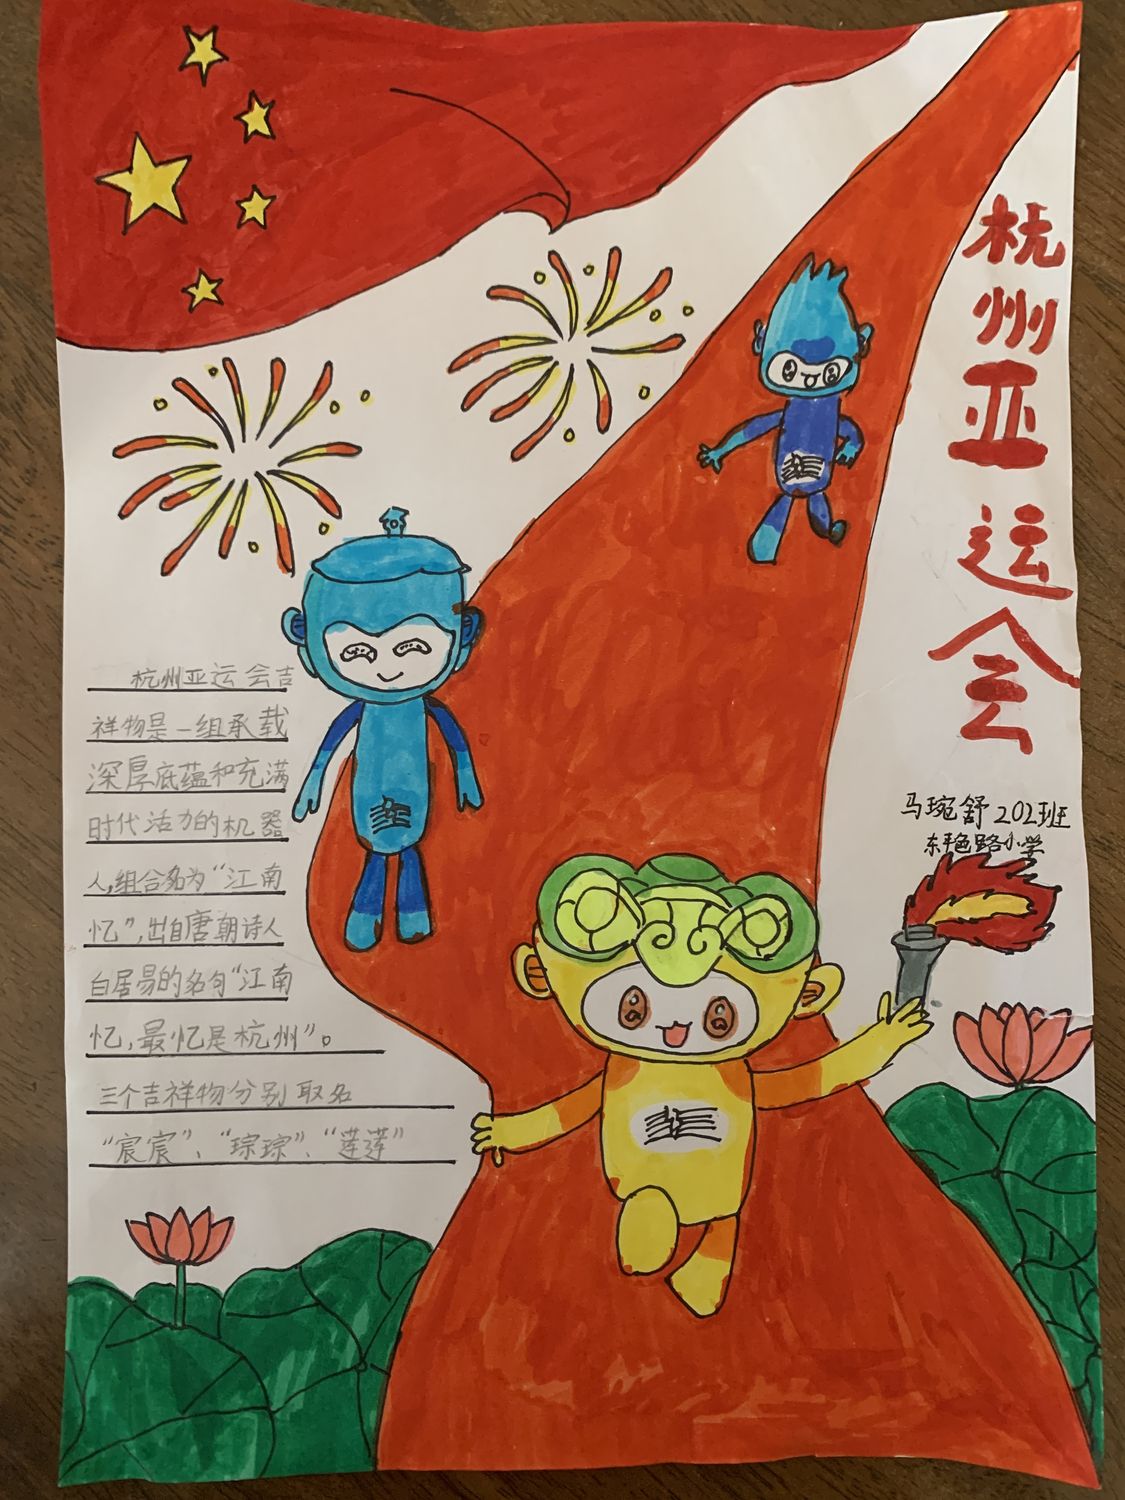 杭州亚运会
马琬舒 202班
东平邑路小学
杭州亚运会吉
祥物是一组承载
深厚底蕴和充满
时代活力的机器
人,组合名为“江南
忆”,出自唐朝诗人
白居易的名句“江南
忆,最忆是杭州”。
三个吉祥物分别取名
“宸宸”、“琮琮”、“莲莲”